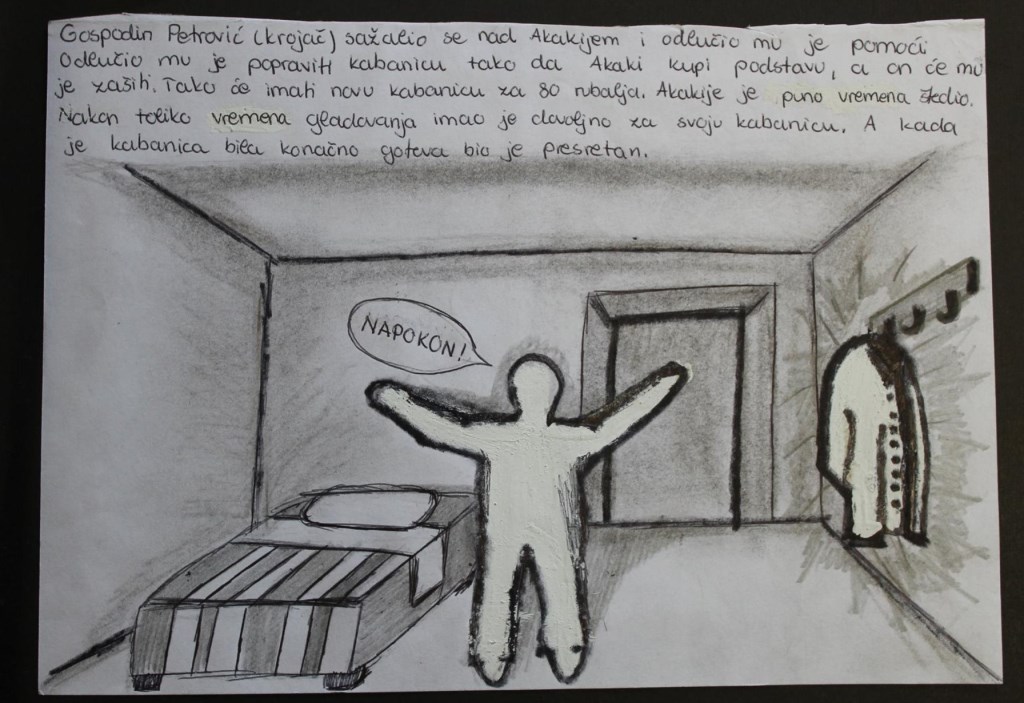 Gospodin Petrović (krojač) sažalio se nad Akakijem i odlučio mu je pomoći
Odlučio mu je popraviti kabanicu tako da Akaki kupi podstavu, a on će mu
je zašiti. Tako će imati novu kabanicu za 80 rubalja. Akakije je puno vremena štedio.
Nakon toliko vremena gladovanja imao je dovoljno za svoju kabanicu. A kada
je kabanica bila konačno gotova bio je presretan.
NAPOKON!